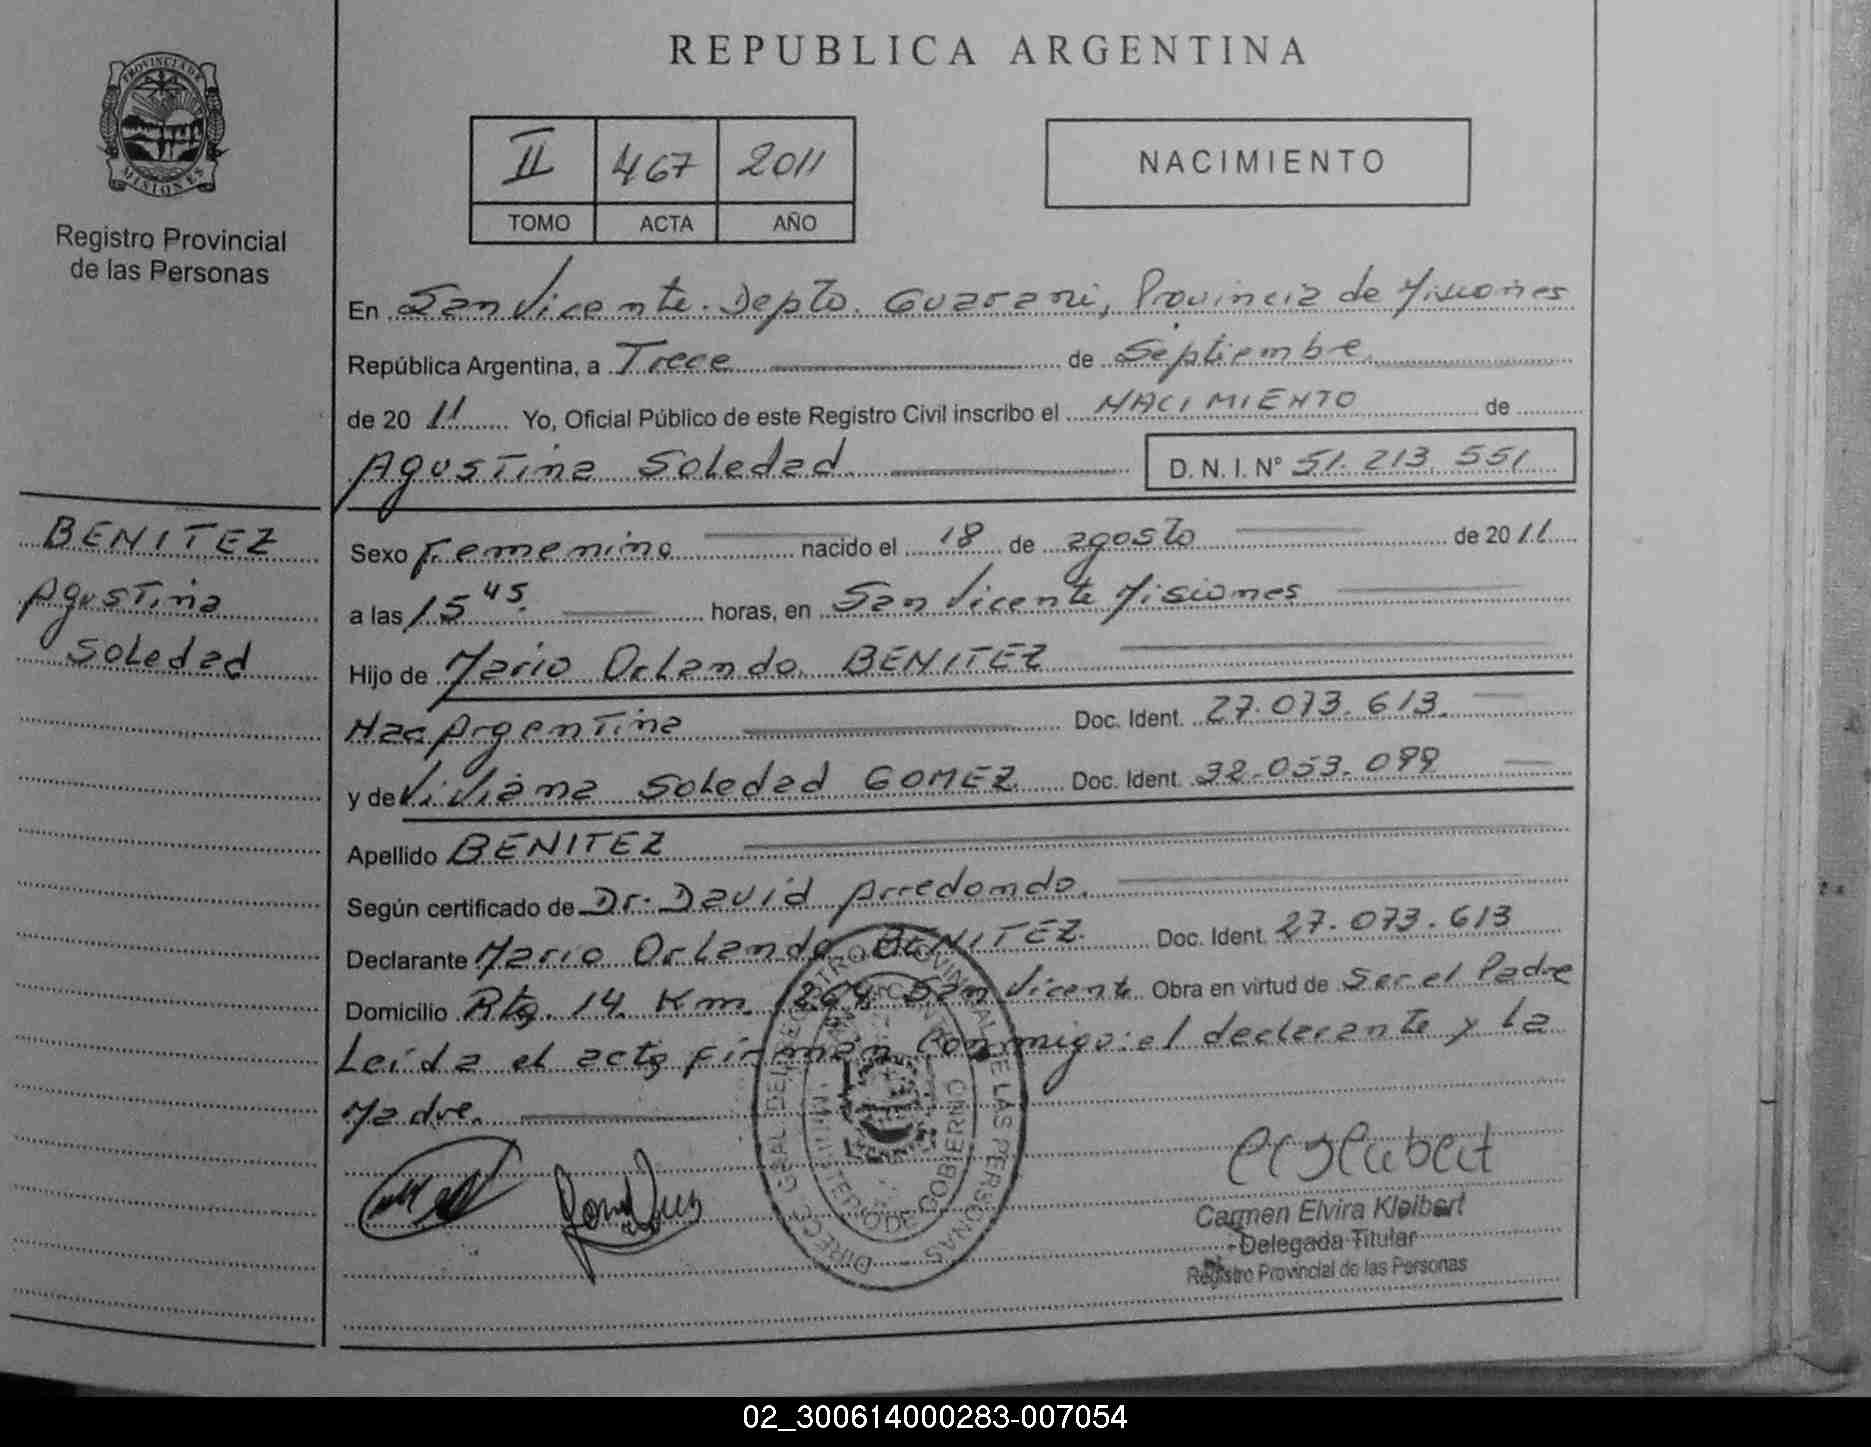 PROVINCIA DE
MISIONES
Registro Provincial
de las Personas
REPUBLICA ARGENTINA
II 467 2011
TOMO ACTA AÑO
NACIMIENTO
En San Vicente. Depto. Guarani, Provincia de Misiones
República Argentina, a Trece de Septiembre
de 2011 Yo, Oficial Público de este Registro Civil inscribo el NACIMIENTO de
Agustina Soledad D. N. I. N° 51.213.551
BENITEZ
Agustina
Soledad
Sexo Femenino nacido el 18 de agosto de 2011
a las 15 45. horas, en San Vicente Misiones
Hijo de Mario Orlando BENITEZ
Nac Argentina Doc. Ident. 27.073.613.
y de Viviana Soledad GOMEZ Doc. Ident. 32.053.099
Apellido BENITEZ
Según certificado de Dr. David Arredondo.
Declarante Mario Orlando BENITEZ Doc. Ident. 27.073.613
Domicilio Rta. 14 Km San Vicente Obra en virtud de Ser el Padre
Leída el acta firman Conmigo: el declarante y la
Madre.
DIRECC. GRAL DEL REGISTRO PROVINCIAL DE LAS PERSONAS
MINISTERIO DE GOBIERNO
Carmen Elvira Kleibert
Delegada Titular
Registro Provincial de las Personas
02_300614000283-007054